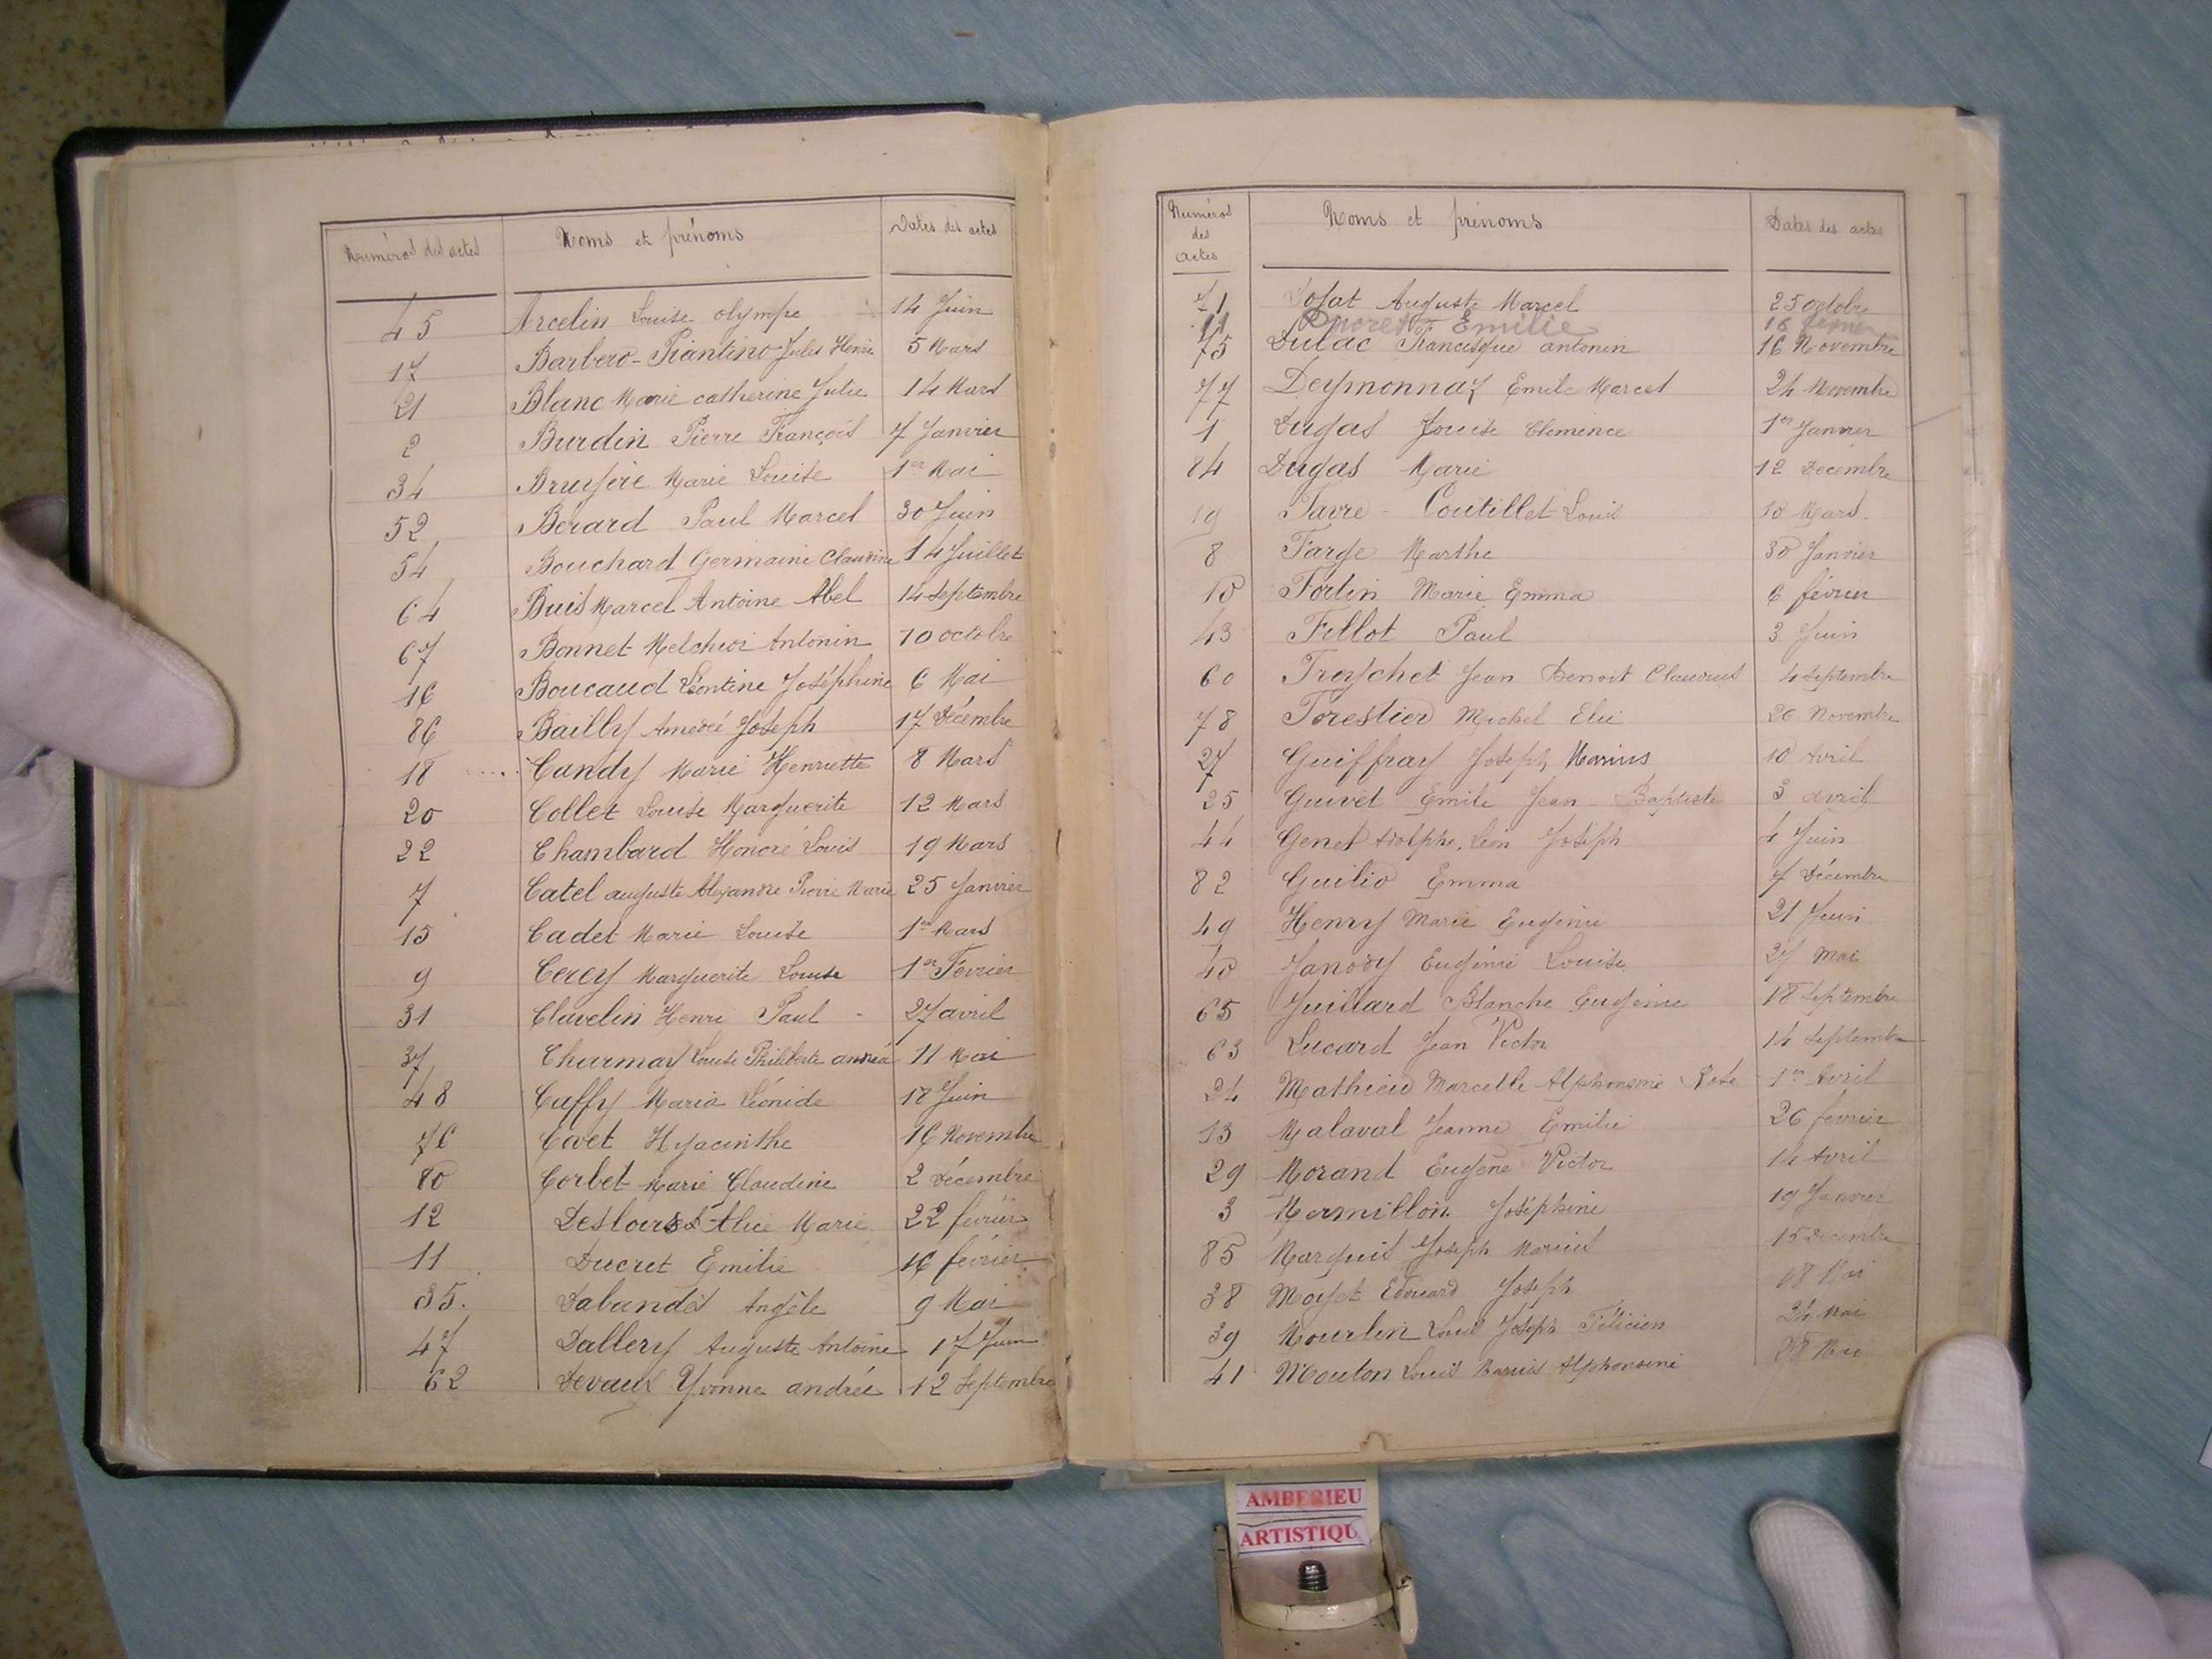 Numéros des actes Noms et prénoms Dates des actes
45 Arcelin Louise olympe 14 Juin
17 Barbero-Piantino Jules Henri 5 Mars
21 Blanc Marie catherine Julie 14 Mars
2 Burdin Pierre François 7 Janvier
34 Bruyère Marie Louise 1er Mai
52 Berard Paul Marcel 30 Juin
54 Bouchard Germaine Claudine 14 Juillet
64 Buis Marcel Antoine Abel 14 Septembre
67 Bonnet Melchior Antonin 10 octobre
16 Boucaud Léontine Joséphine 6 Mai
86 Bailly Amedée Joseph 17 Décembre
18 Candy Marie Henriette 8 Mars
20 Collet Louise Marguerite 12 Mars
22 Chambard Honoré Louis 19 Mars
7 Catel auguste Alexandre Pierre Marie 25 Janvier
15 Cadet Marie Louise 1er Mars
9 Cercy Marguerite Louise 1er Février
31 Clavelin Henri Paul - 27 avril
37 Charmay Louise Philiberte andréa 11 Mai
48 Caffy Maria Léonide 18 Juin
76 Covet Hyacinthe 16 Novembre
80 Corbet Marie Claudine 2 Décembre
12 Alice Marie 22 février
11 Ducret Emilie 16 février
35. Dabandés Angèle 9 Mai
47 Dallery Auguste Antoine 17 Juin
62 Devaux Yvonne andrée 12 Septembre
Numéros des Actes Noms et prénoms Dates des actes
71 Auguste Marcel 25 octobre
11 Ducret Emilie 16 février
75 Dulac Francisque antonin 16 Novembre
77 Deymonnaz Emile Marcel 24 Novembre
1 Dugas Louise Clemence 1er Janvier
84 Dugas Marie 12 Décembre
19 Favre - Coutillet Louis 10 Mars.
8 Farge Marthe 30 Janvier
10 Fortin Marie Emma 6 février
43 Fillot Paul 3 Juin
60 Freychet Jean Benoit Claudius 4 Septembre
78 Forestier Michel Elie 26 Novembre
27 Guiffray Joseph Marius 10 Avril
25 Guivet Emile Jean - Baptiste 3 avril
44 Genet Adolphe, Léon Joseph 4 Juin
82 Guilio Emma 7 Décembre
49 Henry Marie Eugénie 21 Juin
40 Janody Eugénie Louise 27 Mai
65 Juillard Blanche Eugénie 18 Septembre
63 Lucard Jean Victor 14 Septembre
24 Mathieu Marcelle Alphonsine Rose 1er Avril
13 Malaval Jeanne Emilie 26 février
29 Morand Eugène Victor 14 Avril
3 Mermillon Joséphine 19 Janvier
85 Marquis Joseph Marius 15 Decembre
38 Moyet Edouard Joseph 18 Mai
39 Mourlin Louis Joseph Félicien 24 Mai
41 Mouton Louis Marius Alphonsine 28 Mai
AMBERIEU
ARTISTIQU